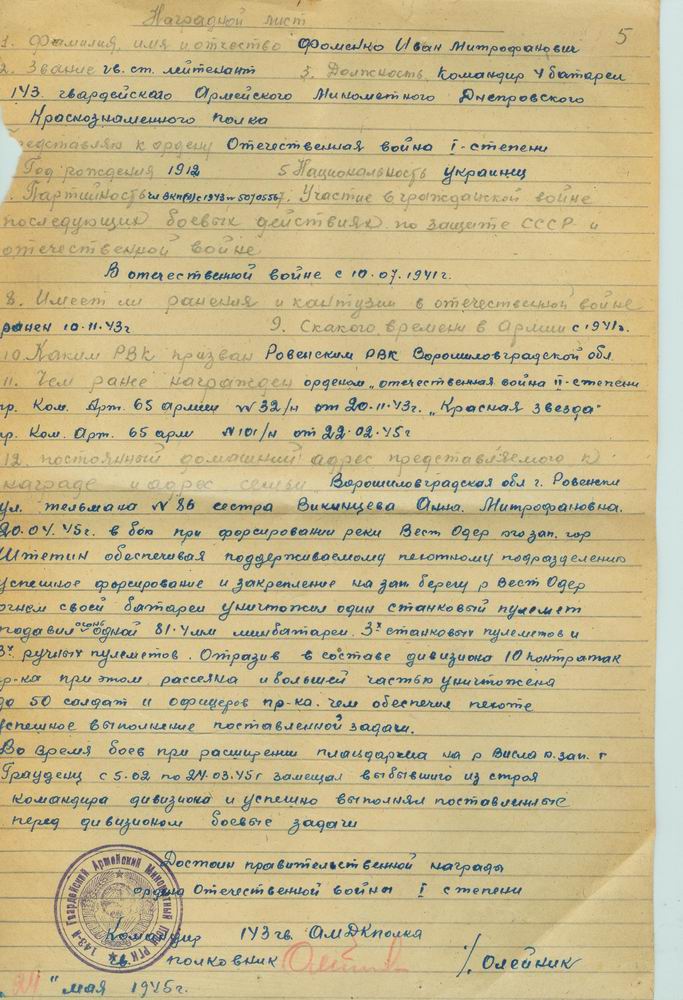 Наградной лист
5
1. Фамилия, имя и отчество Фоменко Иван Митрофанович
2. Звание гв. ст. лейтенант 3. Должность Командир 4 батареи
143 гвардейского Армейского Минометного Днепровского
Краснознаменного полка
Представляю к ордену Отечественная война I-степени
Год рождения 1912 5 Национальность украинец
Партийность чл ВКП(б) с 1943 № 5070556 7. Участие в гражданской войне
последующих боевых действиях по защите СССР и
отечественной войне
В отечественной войне с 10.07.1941г.
8. Имеет ли ранения и кантузии в отечественной войне
ранен 10.11.43г 9. Скакого времени в Армии с 1941г.
10. Каким РВК призван Ровенским РВК Ворошиловградской обл
11. Чем ране награжден орденом „отечественная война II-степени
пр. Ком. Арт. 65 армии №32/н от 20.11.43г. „Красная звезда"
пр. Ком. Арт. 65 арм №101/н от 22.02.45г
12. постоянный домашний адрес представляемого к
награде и адрес семьи Ворошиловградская обл г. Ровеньки
ул. тельмана № 86 сестра Викинцева Анна. Митрофановна.
20.04.45г. в бою при форсировании реки Вест Одер юго зап. гор
Штетин обеспечивая поддерживаемому пехотному подразделению
успешное форсирование и закрепление на зап берегу р Вест Одер
огнем своей батареи уничтожил один станковый пулемет
подавил огонь одной 81.4мм минбатареи. 3х станковых пулеметов и
3х ручных пулеметов. Отразив в составе дивизиона 10 контратак
пр-ка при этом рассеяна и большей частью уничтожена
до 50 солдат и офицеров пр-ка. чем обеспечил пехоте
успешное выполнение поставленной задачи.
Во время боев при расширении плацдарма на р Висла ю. зап. г
Грауденц с 5.02 по 24.03.45г замещал выбывшего из строя
командира дивизиона и успешно выполнял поставленные
перед дивизионом боевые задачи
Достоин правительственной награды
ордена Отечественной войны I степени
143-й Гвардейский Армейский Минометный Полк РГК
Командир 143 гв. АМДКполка
гв. полковник /Олейник
„24" мая 1945г.